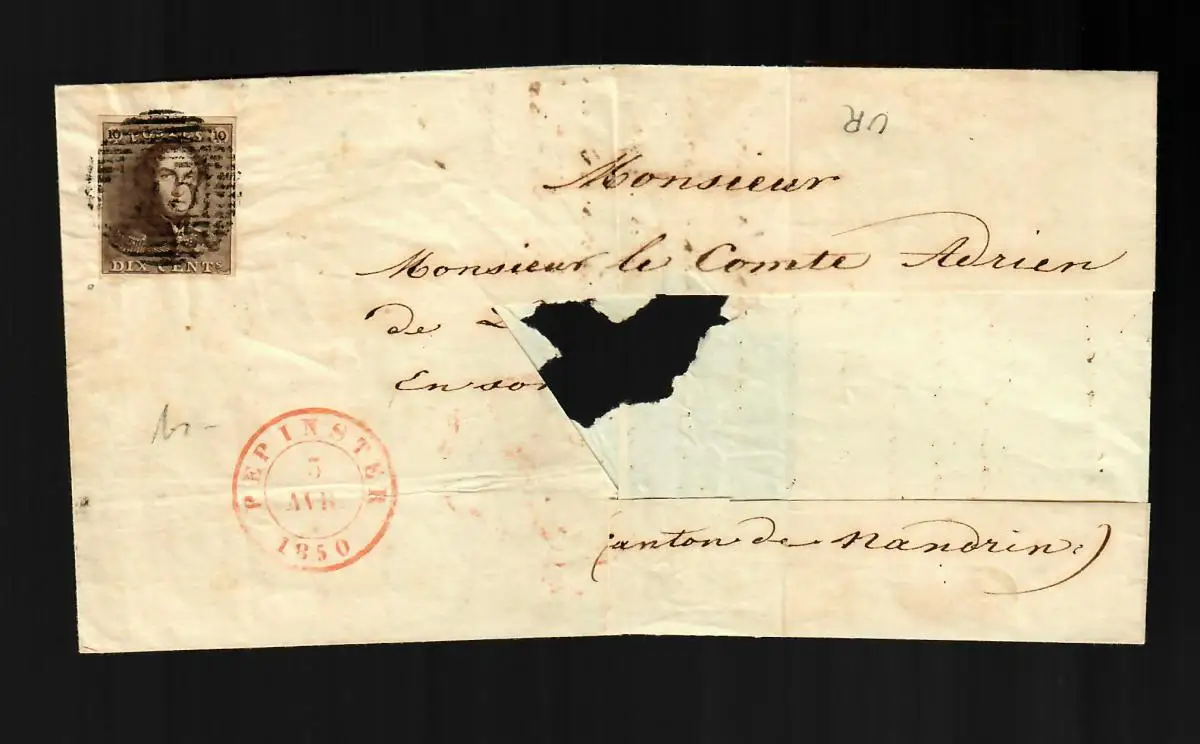 10 POSTES 10
DIX CENTS.
UR
Monsieur
Monsieur le Comte Adrien
de
En son
PEPINSTER
3
AVR.
1850
(Canton de Nandrin)